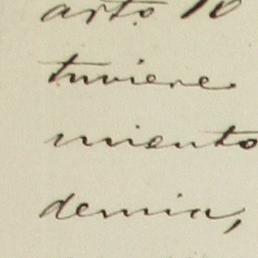 arto 10
tuviere
miento
demia,